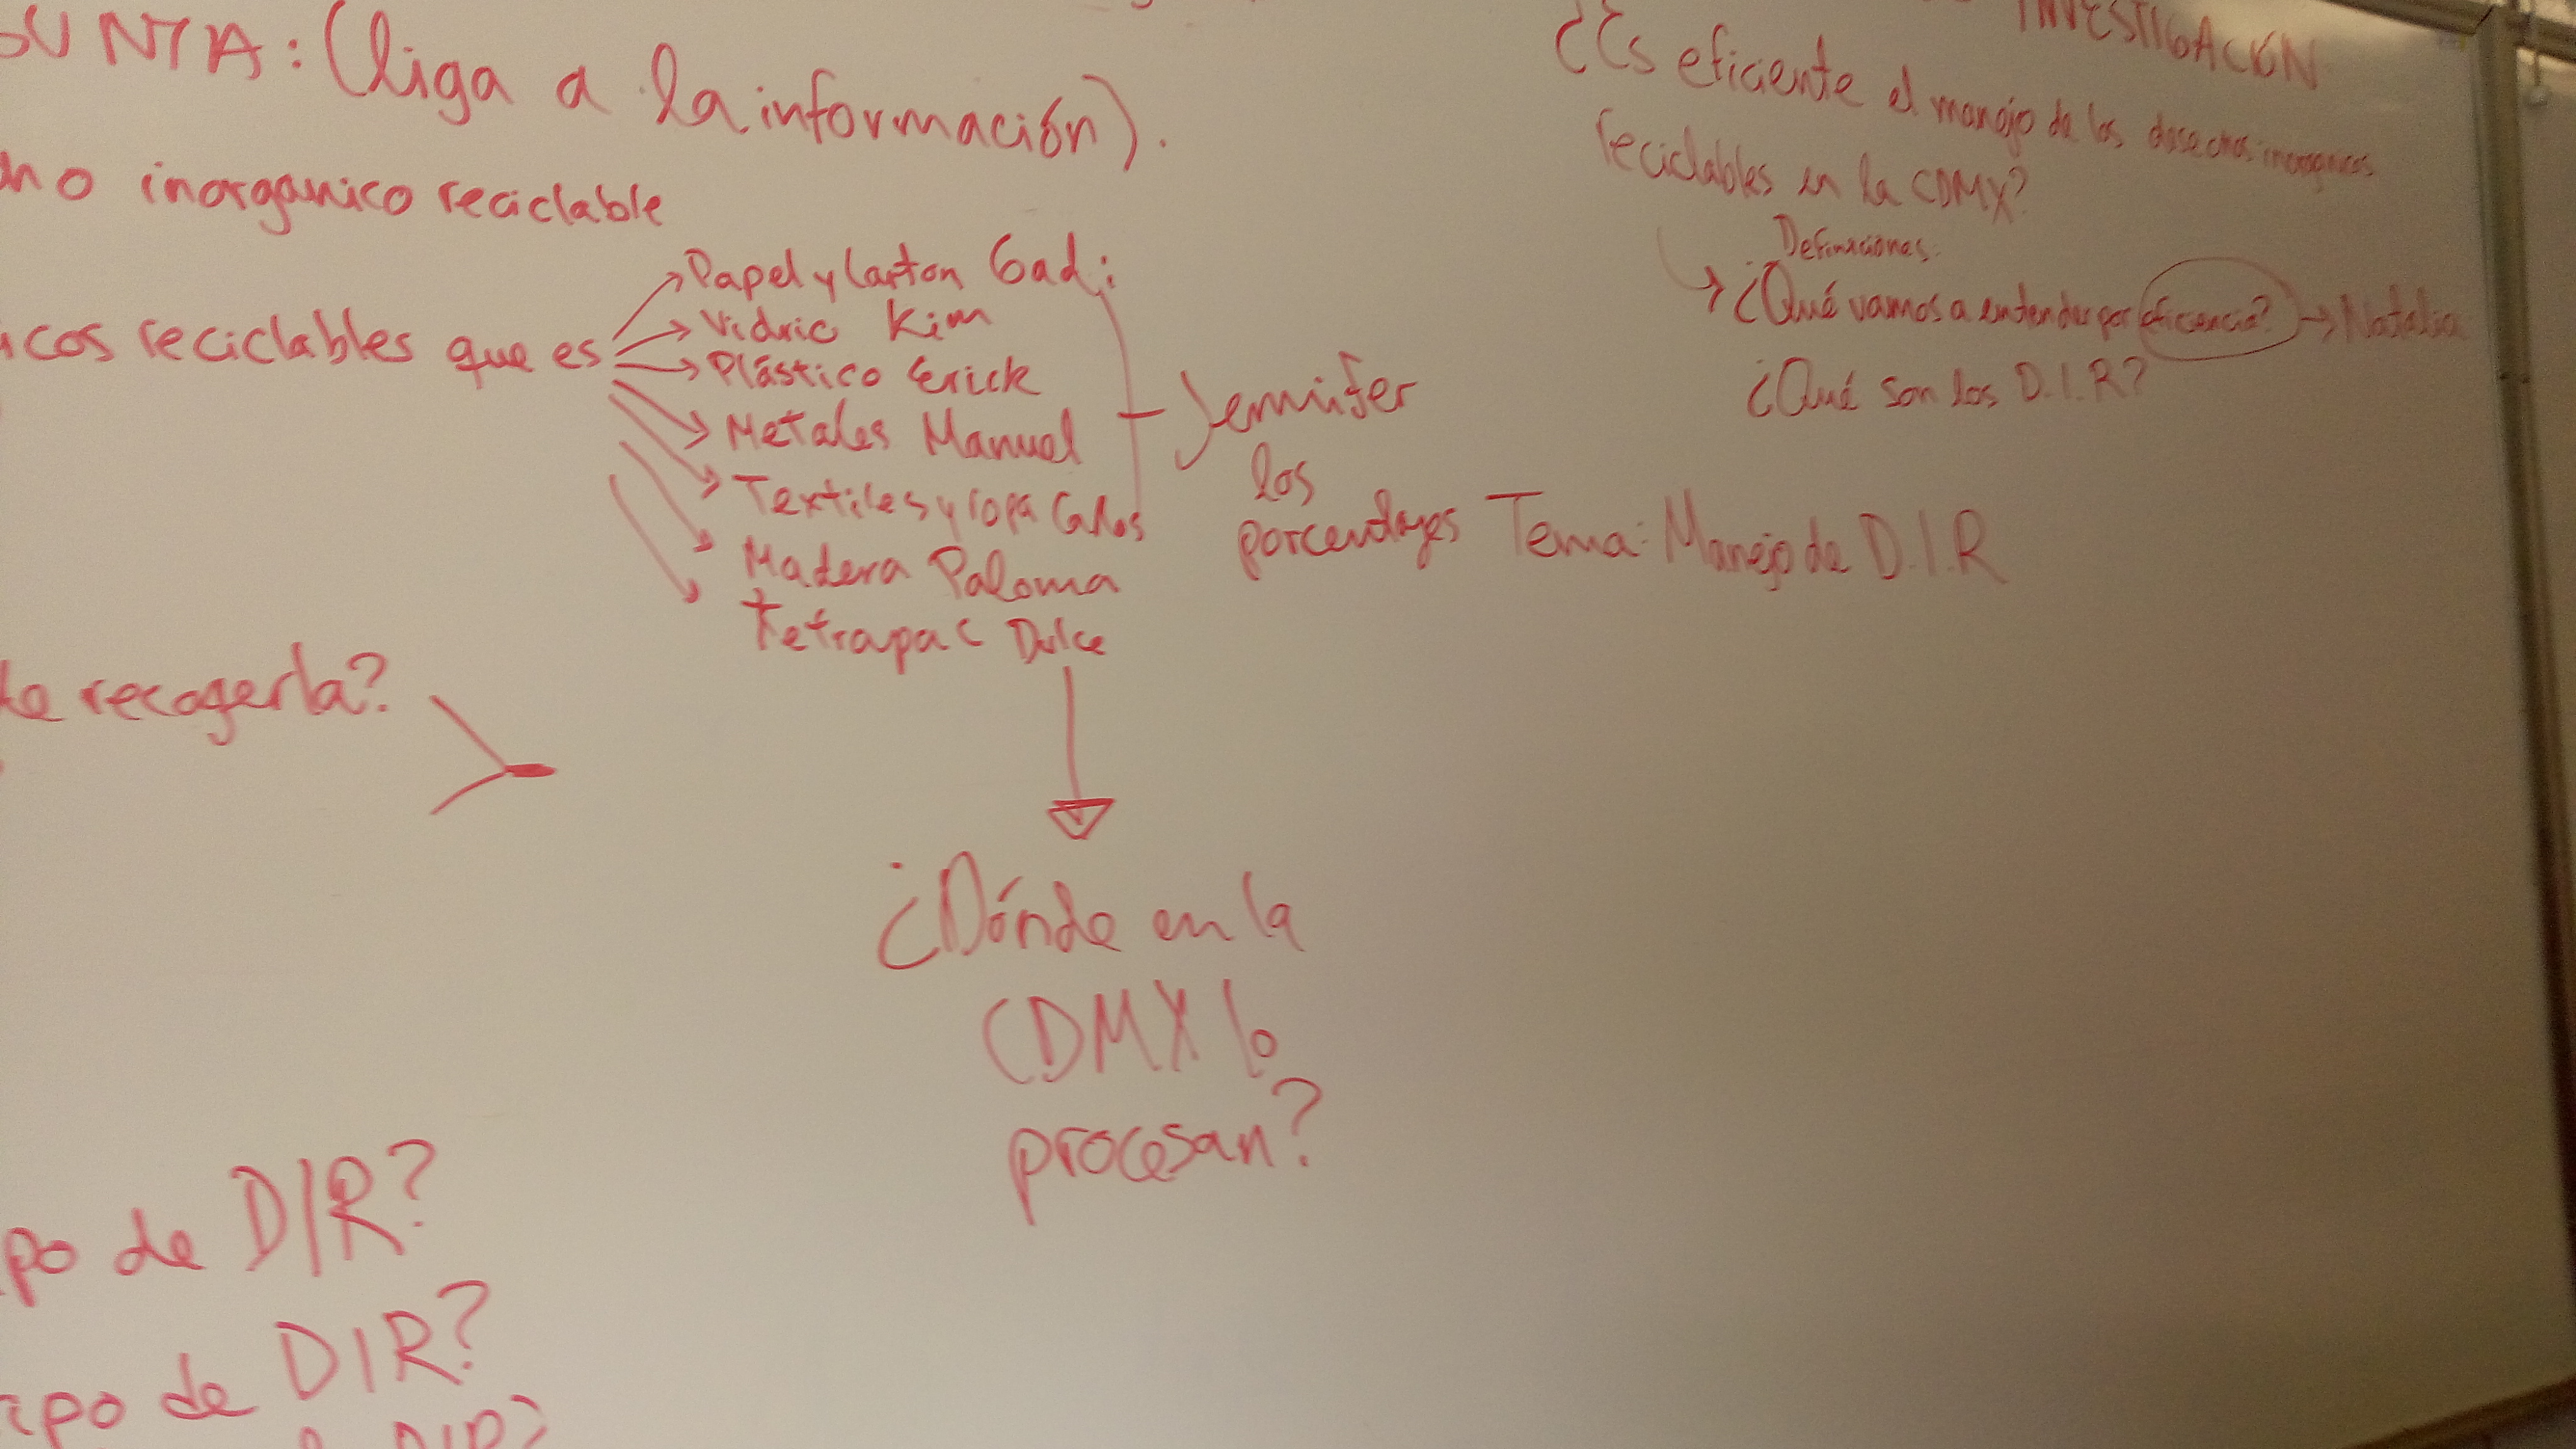 UNTA: (liga a la información).
no inorganico reciclable
icos reciclables que es
Papel y Carton Gadi
Vidrio Kim
Plástico Erick
Metales Manuel
Textiles y ropa Carlos
Madera Paloma
Tetrapac Dulce
Jennifer
los
porcentages
de recogerla?
¿Dónde en la
CDMX lo
procesan?
po de DIR?
ipo de DIR?
DIR?
INVESTIGACIÓN
¿Es eficiente el manejo de los desechos inorganicos
reciclables en la CDMX?
Definiciones
¿Qué vamos a entender por eficencia? → Natalia
¿Qué son los D.I.R?
Tema: Manejo de D.I.R